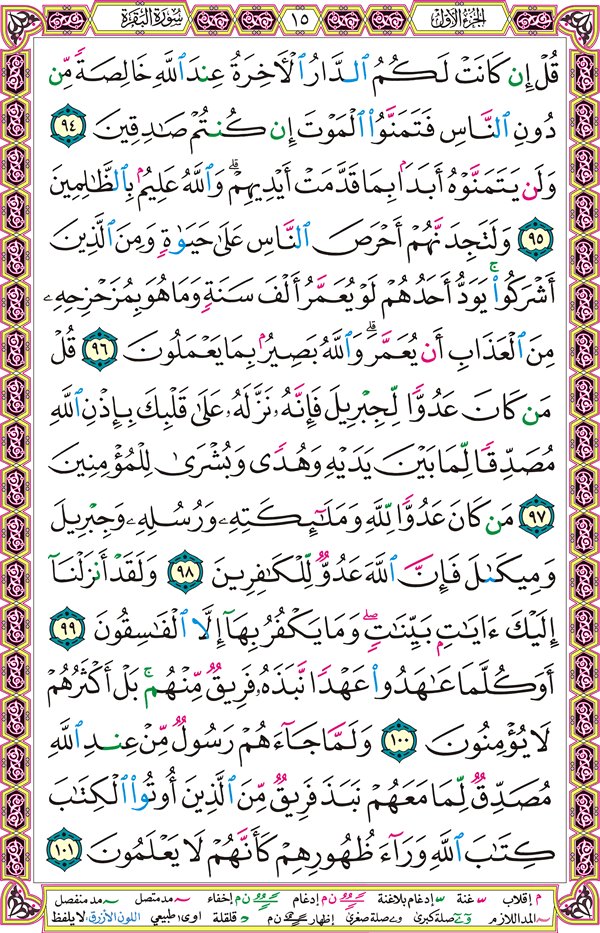 سُورَةُ البَقَرَةِ ١٥ الجُزْءُ الأَوَّلُ
قُلْ إِن كَانَتْ لَكُمُ ٱلدَّارُ ٱلْأَخِرَةُ عِندَ ٱللَّهِ خَالِصَةً مِّن
دُونِ ٱلنَّاسِ فَتَمَنَّوُا۟ ٱلْمَوْتَ إِن كُنتُمْ صَـٰدِقِينَ ٩٤
وَلَن يَتَمَنَّوْهُ أَبَدَۢا بِمَا قَدَّمَتْ أَيْدِيهِمْ ۗ وَٱللَّهُ عَلِيمُۢ بِٱلظَّـٰلِمِينَ
٩٥ وَلَتَجِدَنَّهُمْ أَحْرَصَ ٱلنَّاسِ عَلَىٰ حَيَوٰةٍ وَمِنَ ٱلَّذِينَ
أَشْرَكُوا۟ ۚ يَوَدُّ أَحَدُهُمْ لَوْ يُعَمَّرُ أَلْفَ سَنَةٍ وَمَا هُوَ بِمُزَحْزِحِهِۦ
مِنَ ٱلْعَذَابِ أَن يُعَمَّرَ ۗ وَٱللَّهُ بَصِيرُۢ بِمَا يَعْمَلُونَ ٩٦ قُلْ
مَن كَانَ عَدُوًّا لِّجِبْرِيلَ فَإِنَّهُۥ نَزَّلَهُۥ عَلَىٰ قَلْبِكَ بِإِذْنِ ٱللَّهِ
مُصَدِّقًا لِّمَا بَيْنَ يَدَيْهِ وَهُدًى وَبُشْرَىٰ لِلْمُؤْمِنِينَ
٩٧ مَن كَانَ عَدُوًّا لِّلَّهِ وَمَلَـٰٓئِكَتِهِۦ وَرُسُلِهِۦ وَجِبْرِيلَ
وَمِيكَىٰلَ فَإِنَّ ٱللَّهَ عَدُوٌّ لِّلْكَـٰفِرِينَ ٩٨ وَلَقَدْ أَنزَلْنَآ
إِلَيْكَ ءَايَـٰتِۭ بَيِّنَـٰتٍ ۖ وَمَا يَكْفُرُ بِهَآ إِلَّا ٱلْفَـٰسِقُونَ ٩٩
أَوَكُلَّمَا عَـٰهَدُوا۟ عَهْدًا نَّبَذَهُۥ فَرِيقٌ مِّنْهُم ۚ بَلْ أَكْثَرُهُمْ
لَا يُؤْمِنُونَ ١٠٠ وَلَمَّا جَآءَهُمْ رَسُولٌ مِّنْ عِندِ ٱللَّهِ
مُصَدِّقٌ لِّمَا مَعَهُمْ نَبَذَ فَرِيقٌ مِّنَ ٱلَّذِينَ أُوتُوا۟ ٱلْكِتَـٰبَ
كِتَـٰبَ ٱللَّهِ وَرَآءَ ظُهُورِهِمْ كَأَنَّهُمْ لَا يَعْلَمُونَ ١٠١
م إقلاب غنة إدغام بلاغنة ن م إدغام ن م إخفاء مد متصل مد منفصل
المد اللازم صلة كبرى صلة صغرى إظهار ن م قلقلة اوى: طبيعي اللون الأزرق: لا يلفظ